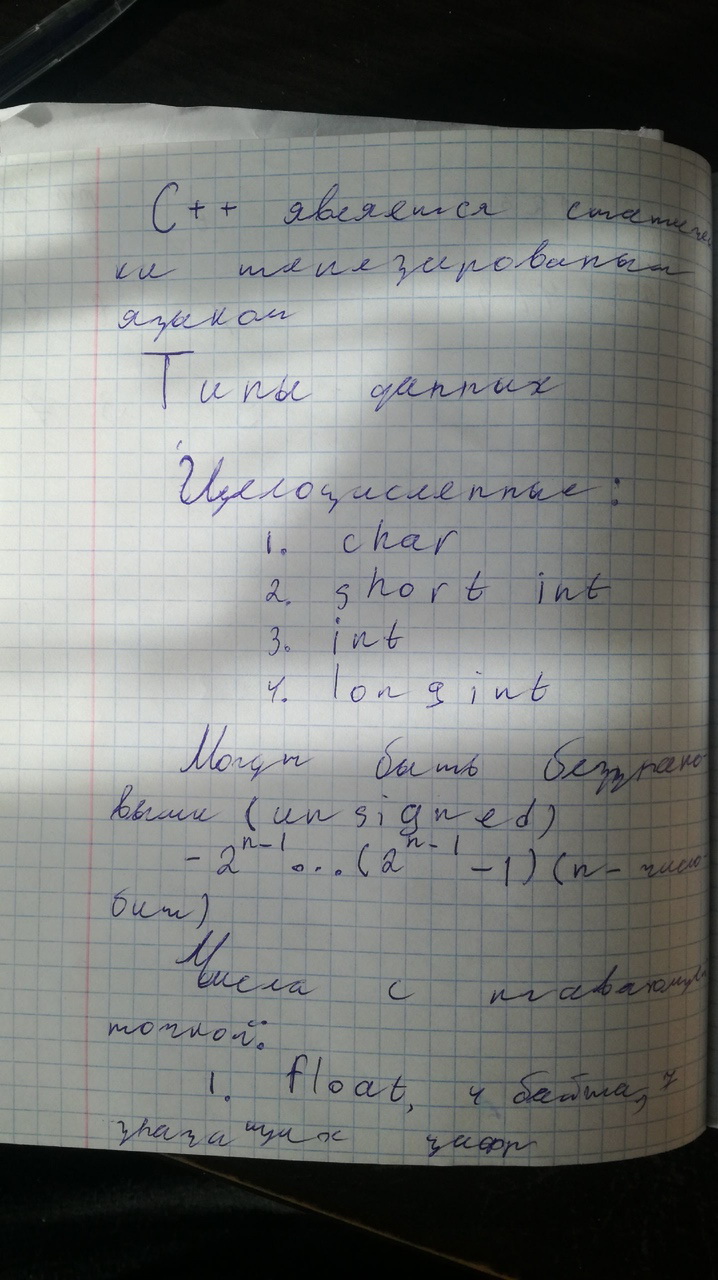 C++ является статичес
ки типизированым
языком
Типы данных
Целочисленные:
1. char
2. short int
3. int
4. long int
Могут быть беззнако-
выми (unsigned)
-2^(n-1)...(2^(n-1) -1) (n- число
бит)
Числа с плавающей
точкой:
1. float, 4 байта, 7
значащих цифр